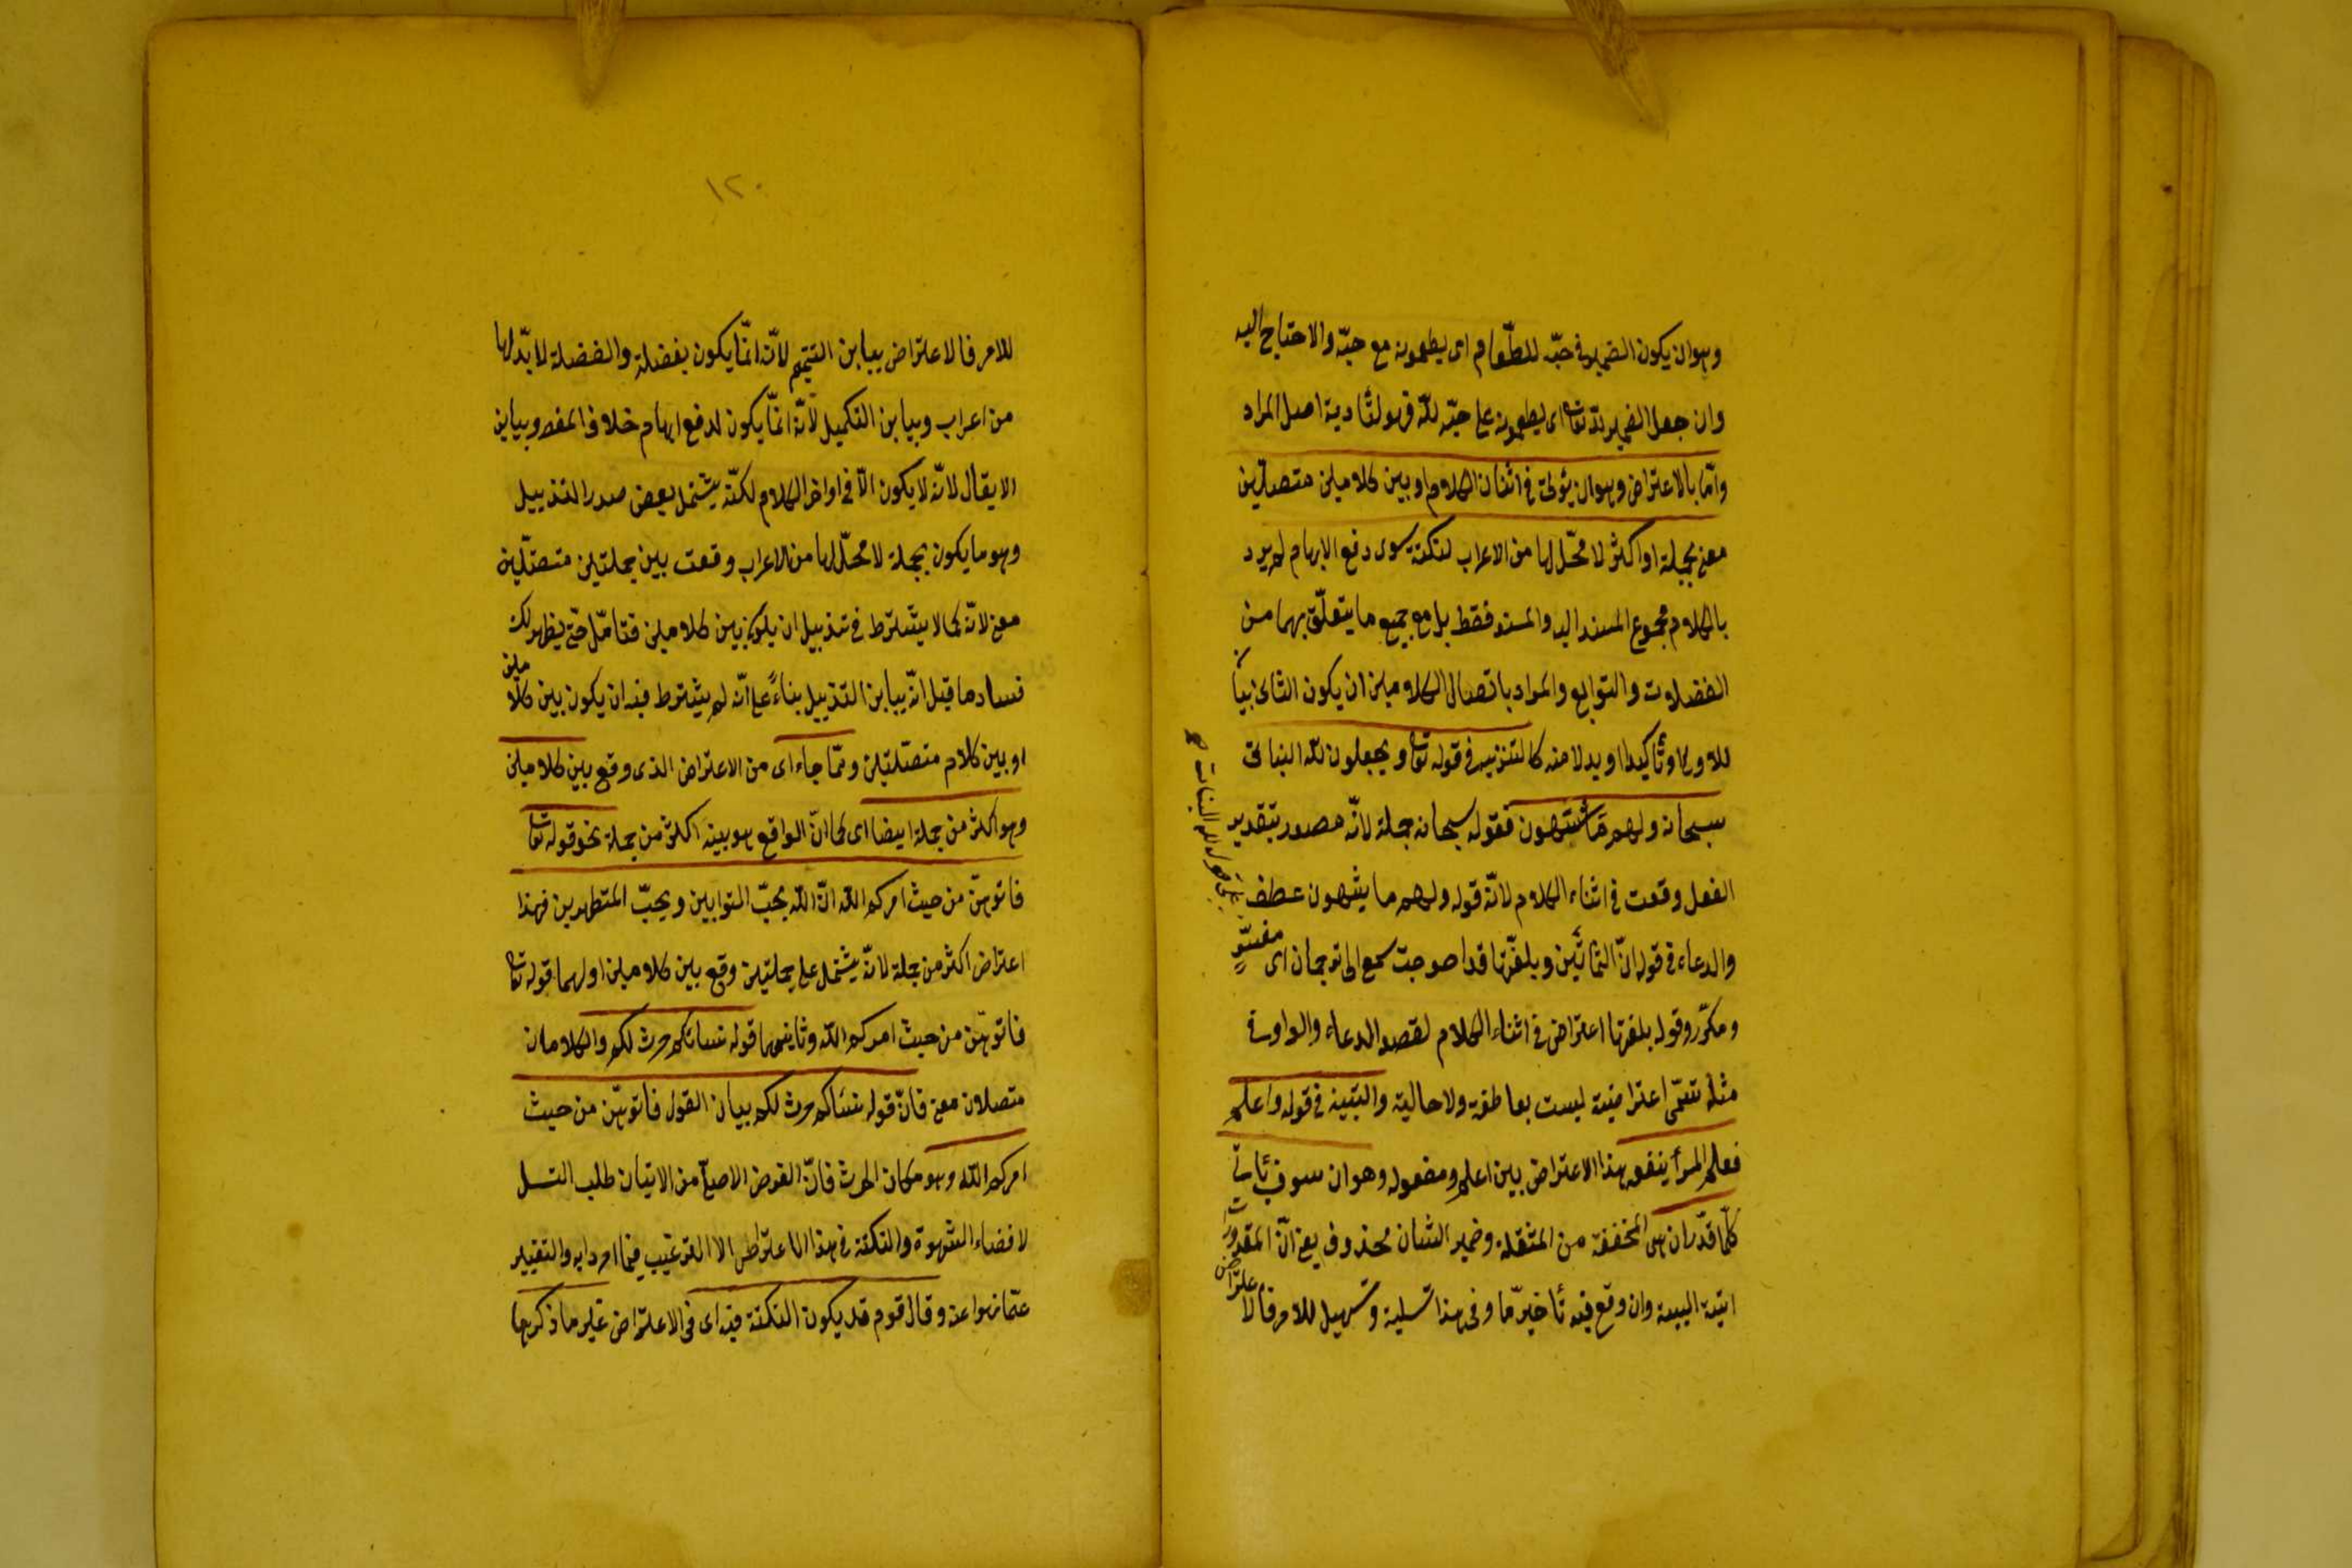 وهو ان يكون الضمير فى حبّه للطّعام اى يطعمونه مع حبّه والاحتياج اليه
وان جعل الضمير للّه تعا اى يطعمونه على حبّه للّه فهو لتأدية اصل المراد
وامّا بالاعتراض وهو ان يؤتى فى اثناء الكلام او بين كلامين متصلين
معنى بجملة او اكثر لا محلّ لها من الاعراب لنكتة سوى دفع الايهام لم يرد
بالكلام مجموع المسند اليه والمسند فقط بل مع جميع ما يتعلّق بهما من
الفضلات والتوابع والمراد باتصال الكلامين ان يكون الثانى بيانا
للاول او تأكيدا او بدلا منه كالتنزيه فى قوله تعا ويجعلون للّه البنات
سبحانه ولهم ما يشتهون فقوله سبحانه جملة لانّه مصدر بتقدير
الفعل وقعت فى اثناء الكلام لانّ قوله ولهم ما يشتهون عطف
على قوله للّه البنات صح
والدعاء فى قوله انّ الثمانين وبلغتها قد احوجت سمعى الى ترجمان اى مفسّر
ومكرّر وقوله بلغتها اعتراض فى اثناء الكلام لقصد الدعاء والواو فى
مثله تسمّى اعتراضية ليست بعاطفة ولا حالية والتنبيه فى قوله واعلم
فعلم المرأ ينفعه هذا الاعتراض بين اعلم ومفعوله وهو ان سوف يأتى
كلّما قدّر ان هى المخففة من المثقلة وضمير الشان محذوف يعنى انّ المقدورات
اتية البتة وان وقع فيه تأخير ما وفى هذا تسلية وتسهيل للامر فالاعتراض
١٢٠
للامر فالاعتراض يباين التتميم لانّه انّما يكون بفضلة والفضلة لا بدّ لها
من اعراب ويباين التكميل لانّه انّما يكون لدفع ايهام خلاف المقصد ويباين
الايغال لانّه لا يكون الّا فى اواخر الكلام لكنّه يشتمل بعض صور التذييل
وهو ما يكون بجملة لا محلّ لها من الاعراب وقعت بين جملتين متصلتين
معنى لانّه كما لا يشترط فى تذييل ان يكون بين كلامين فتأمّل حتّى يظهر لك
فساد ما قيل انّه يباين التذييل بناءً على انّه لم يشترط فيه ان يكون بين كلامين
او بين كلام متصلتين وممّا جاء اى من الاعتراض الذى وقع بين كلامين
وهو اكثر من جملة ايضا اى كما انّ الواقع هو بينه اكثر من جملة نحو قوله تعا
فاتوهنّ من حيث امركم اللّه انّ اللّه يحبّ التوابين ويحبّ المتطهرين فهذا
اعتراض اكثر من جملة لانّه يشتمل على جملتين وقع بين كلامين اولهما قوله تعا
فاتوهنّ من حيث امركم اللّه وثانيهما قوله نسائكم حرث لكم والكلامان
متصلان معنى فانّ قوله نسائكم حرث لكم بيان القول فاتوهنّ من حيث
امركم اللّه وهو مكان الحرث فانّ الغرض الاصلى من الاتيان طلب النسل
لا قضاء الشهوة والنكتة فى هذا الاعتراض الا الترغيب فيما امر به والتنفير
عمّا نهوا عنه وقال قوم قد يكون النكتة فيه اى فى الاعتراض غير ما ذكر بها